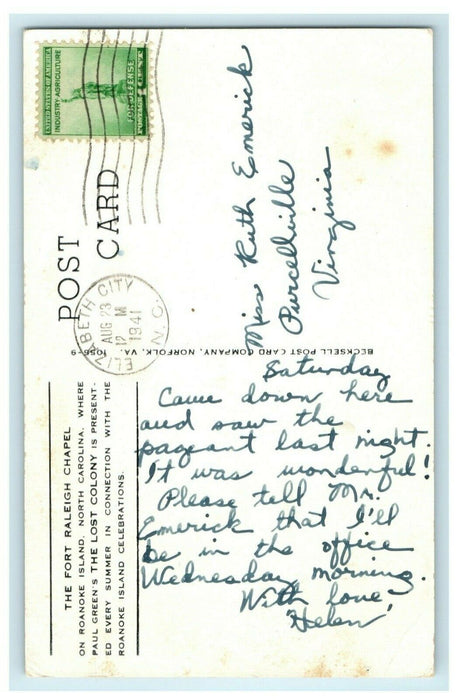 UNITED STATES OF AMERICA
INDUSTRY-AGRICULTURE
FOR DEFENSE
POST
CARD
ELIZABETH CITY
AUG 23
12 M
1941
N.C.
Miss Ruth Emerick
Purcellville
Virginia
BECKSELL POST CARD COMPANY, NORFOLK, VA. 1056-9
THE FORT RALEIGH CHAPEL
ON ROANOKE ISLAND, NORTH CAROLINA, WHERE
PAUL GREEN'S THE LOST COLONY IS PRESENT-
ED EVERY SUMMER IN CONNECTION WITH THE
ROANOKE ISLAND CELEBRATIONS.
Saturday
Came down here
and saw the
pageant last night.
It was wonderful!
Please tell Mr.
Emerick that I'll
be in the office
Wednesday morning.
With love,
Helen